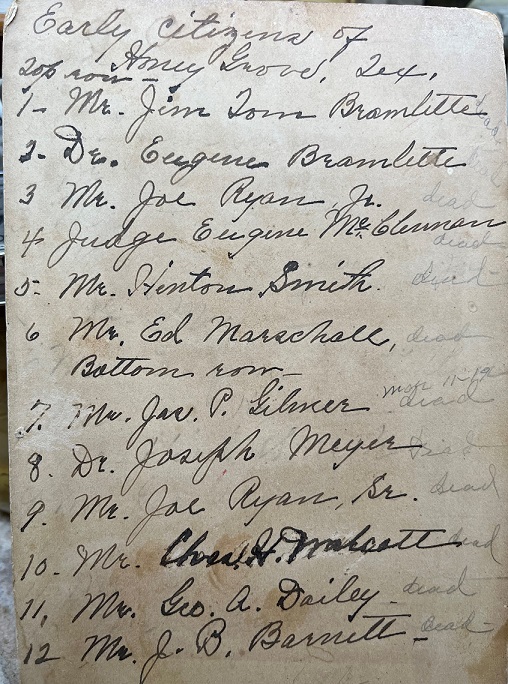 Early citizens of
Top row - Honey Grove, Tex.
1- Mr. Jim Tom Bramlette dead
2- Dr. Eugene Bramlette dead
3 Mr. Joe Ryan, Jr. dead
4 Judge Eugene McClennan dead
5- Mr. Hinton Smith. dead-
6 Mr. Ed Marschall, dead
Bottom row-
7. Mr. Jas. P. Gilmer dead
8. Dr. Joseph Meyer dead
9. Mr. Joe Ryan, Sr. dead
10- Mr. Chas. H. Walcott dead
11, Mr. Geo. A. Dailey - dead
12 Mr. J. B. Barnett - dead-